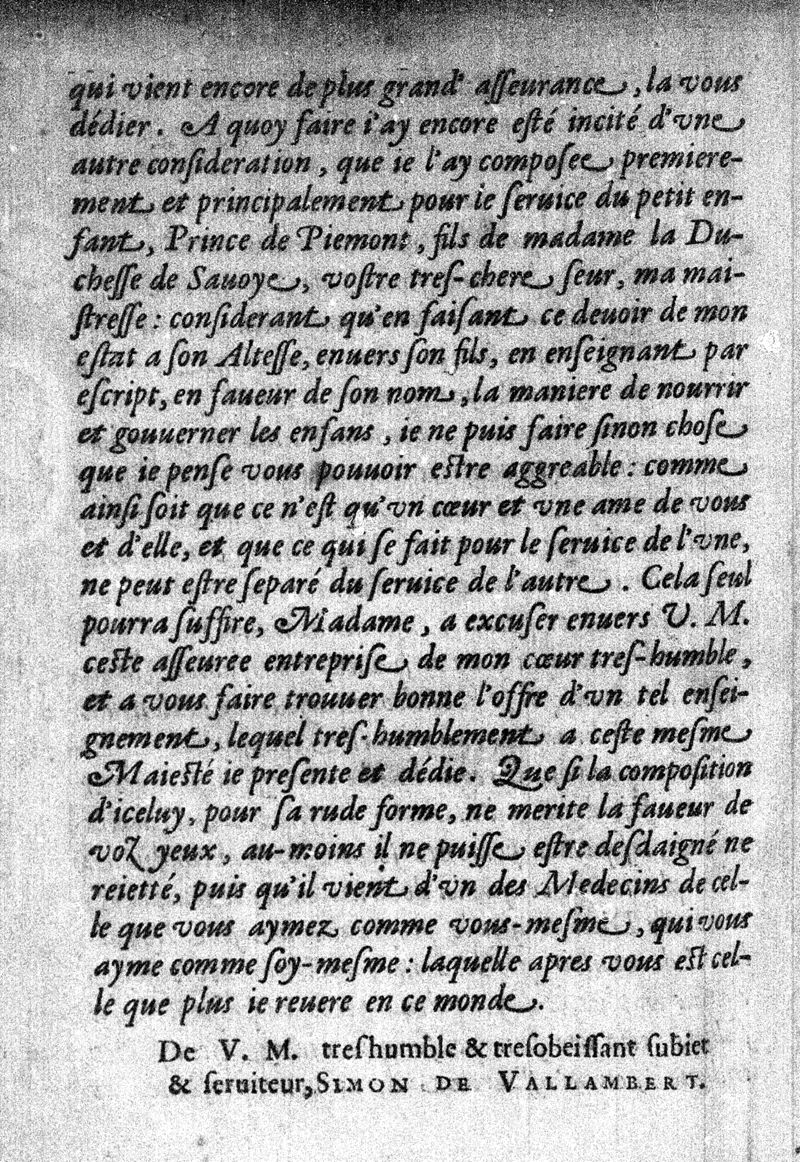 qui vient encore de plus grand' asſeurance, la vous
dédier. A quoy faire i'ay encore eſté incité d'vne
autre conſideration, que ie l'ay compoſee premiere-
ment et principalement pour le ſeruice du petit en-
fant, Prince de Piemont, fils de madame la Du-
cheſſe de Sauoye, voſtre treſ-chere ſeur, ma mai-
ſtreſſe: conſiderant qu'en faiſant ce deuoir de mon
eſtat a ſon Alteſſe, enuers ſon fils, en enſeignant par
eſcript, en faueur de ſon nom, la maniere de nourrir
et gouuerner les enfans, ie ne puis faire ſinon choſe
que ie penſe vous pouuoir eſtre aggreable: comme
ainſi ſoit que ce n'eſt qu'vn cœur et vne ame de vous
et d'elle, et que ce qui ſe fait pour le ſeruice de l'vne,
ne peut eſtre ſeparé du ſeruice de l'autre. Cela ſeul
pourra ſuffire, Madame, a excuſer enuers V. M.
ceſte aſſeuree entrepriſe de mon cœur treſ-humble,
et a vous faire trouuer bonne l'offre d'vn tel enſei-
gnement, lequel treſ-humblement a ceſte meſme
Maieſté ie preſente et dédie. Que ſi la compoſition
d'iceluy, pour ſa rude forme, ne merite la faueur de
voz yeux, au-moins il ne puiſſe eſtre deſdaigné ne
reietté, puis qu'il vient d'vn des Medecins de cel-
le que vous aymez comme vous-meſme, qui vous
ayme comme ſoy-meſme: laquelle apres vous eſt cel-
le que plus ie reuere en ce monde.
De V. M. treſhumble & treſobeiſſant ſubiet
& ſeruiteur, SIMON DE VALLAMBERT.